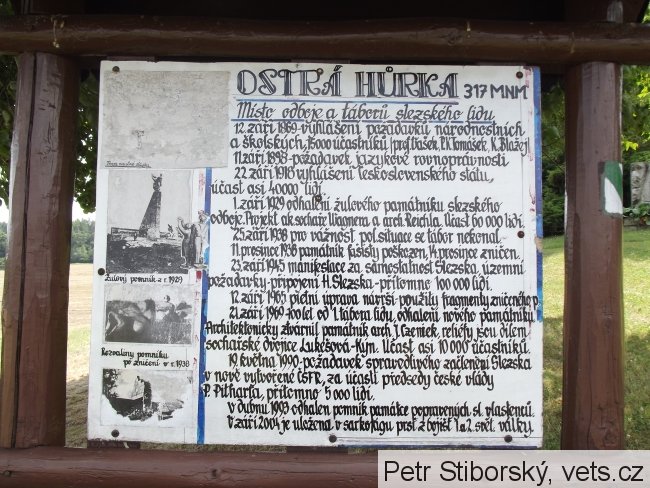 OSTRÁ HŮRKA 317 MNM
Místo odboje a táborů slezského lidu
12. září 1869-vyhlášení požadavků národnostních
a školských, 15000 účastníků /prof. Vašek, P.K. Tomášek, K. Blažej
11. září 1898-požadavek jazykové rovnoprávnosti
22. září 1918 vyhlášení československého státu,
účast asi 40000 lidí.
1. září 1929 odhalení žulového památníku slezského
odboje. Projekt ak. sochař Wagnera a arch. Reichla. Účast 60 000 lidí.
25. září 1938 pro vážnost pol. situace se tábor nekonal.
11. prosince 1938 památník fašisty poškozen, 14. prosince zničen.
23. září 1945 manifestace za samostatnost Slezska, územní
požadavky-připojení H. Slezska-přítomno 100 000 lidí.
12. září 1965 pietní úprava návrší-použity fragmenty zničeného p.
21. září 1969-100 let od 1. tábora lidu, odhalený nového památníku.
Architektonicky ztvárnil památník arch. J. Czeniek, reliéfy jsou dílem
sochařské dvojice Lukešová-Kyn. Účast asi 10 000 účastníků.
19. května 1990-požadavek spravedlivého začlenění Slezska
v nově vytvořené ČSFR, za účasti předsedy české vlády
P. Pitharta, přítomno 5 000 lidí.
V dubnu 1993 odhalen pomník památce popravených sl. vlastenců.
V září 2004 je uložena v sarkofágu prsť z bojišť 1. a 2. svět. války.
Žulový pomník z r. 1929
Rozvaliny pomníku
po zničení v r. 1938
Petr Stiborský, vets.cz